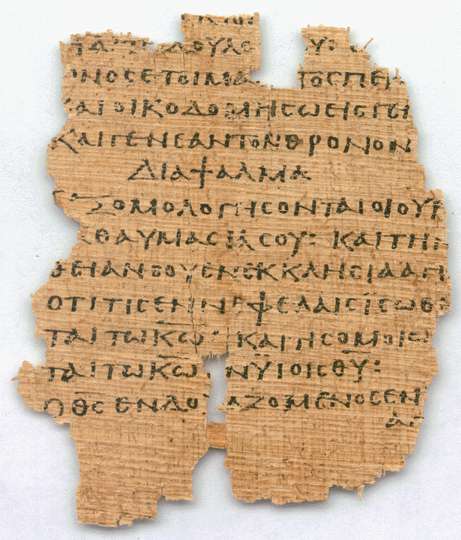 ΤΑ ΔΟΥΛΩ Υ:
ΩΝΟСΕΤΟΙΜΑ ΤΟСΠΕΡ
ΚΑΙΟΙΚΟΔΟΜΗСΩΕΙСΓΕΝ
ΚΑΙΓΕΝΕΑΝΤΟΝΘΡΟΝΟΝ
ΔΙΑΨΑΛΜΑ
ΞΟΜΟΛΟΓΗСΟΝΤΑΙΟΙΟΥΡ
ΘΑΥΜΑСΙΑСΟΥ: ΚΑΙΤΗΝ
ΘΕΙΑΝСΟΥΕΝΕΚΚΛΗСΙΑΑΓΙ
ΟΤΙΤΙСΕΝΝ ΦΕΛΑΙСΙСΩΘ
ΤΑΙΤΩΚ̅Ω̅ ΚΑΙΤΙСΟΜΟΙΩ
ΤΑΙΤΩΚ̅Ω̅ ΝΫΙΟΙСΘ̅Υ̅:
ΟΘ̅С̅ΕΝΔΟ ΑΖΟΜΕΝΟСΕΝ